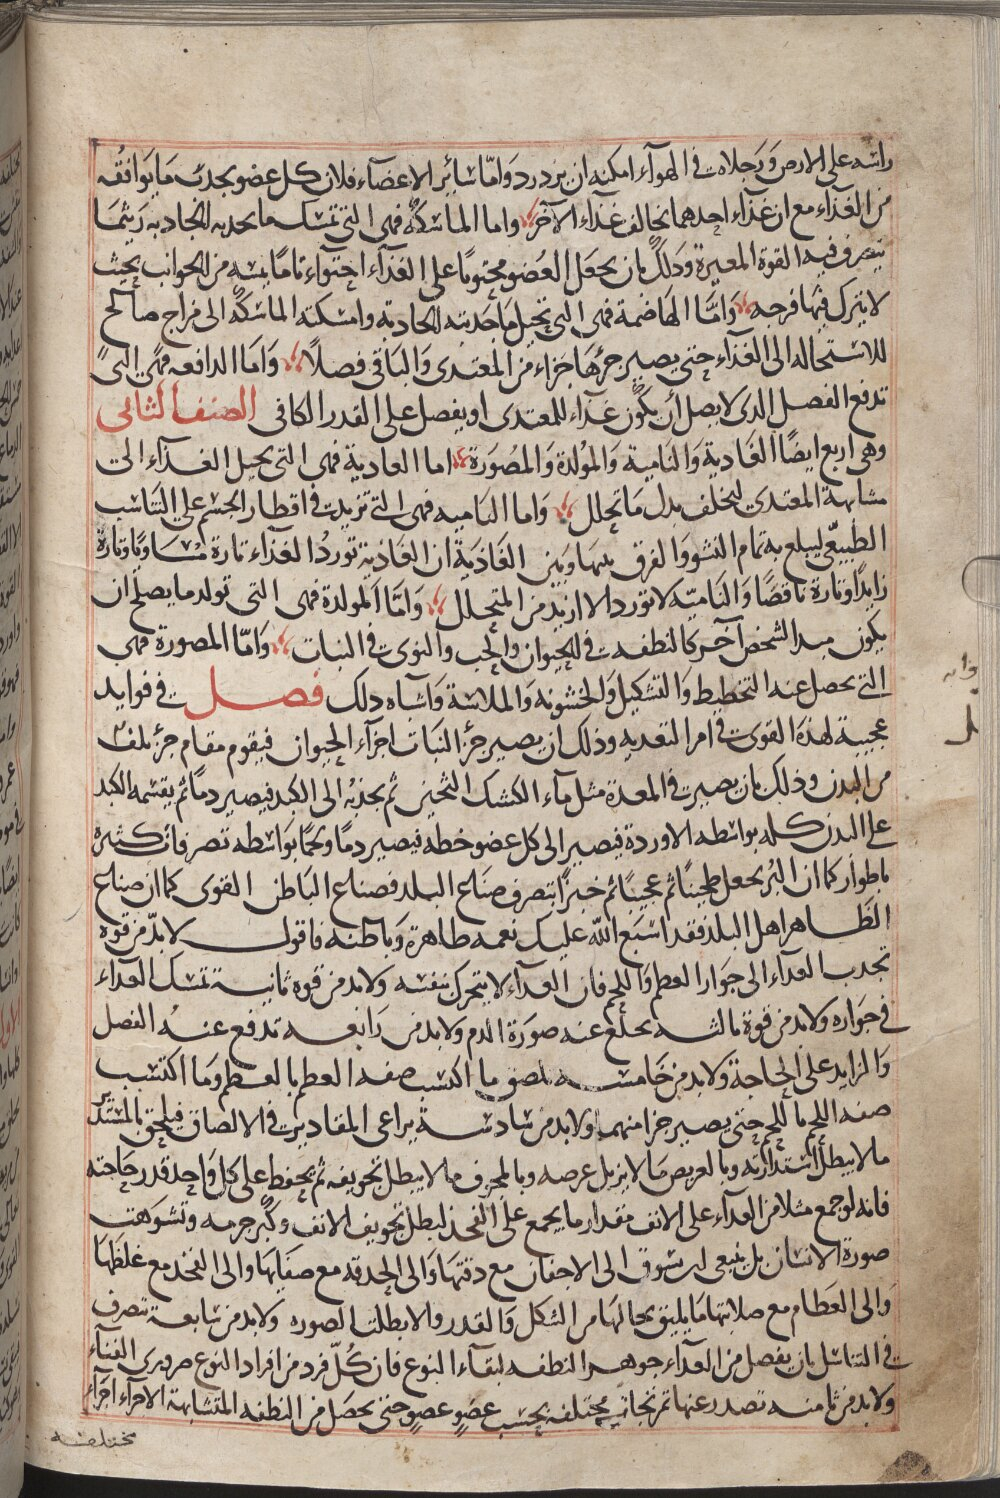 راسه على الارض ورجلاه في الهوآء امكنه ان يزدرد واما سائر الاعضآء فلان كل عضو يجذب ما يوافقه
من الغذآء مع ان غذآء احدهما يخالف غذآء الآخر واما الماسكة فهى التى تمسك ما يجذبه الجاذبة ريثما
يتصرف فيه القوة المغيرة وذلك بان يجعل العضو محتويا على الغذآء احتوآء تاما يمسه من الجوانب بحيث
لا يترك فيها فرجه واما الهاضمة فهى التى تحيل ما جذبته الجاذبة وامسكته الماسكة الى مزاج صالح
للاستحاله الى الغذآء حتى يصير جزءها جزاء من المغتذى والباقى فصلا واما الدافعه فهى التى
تدفع الفصل الذى لا يصل أن يكون غذآء للمغتذى او يفصل على القدر الكافى الصنف الثانى
وهى اربع ايضا الغادية والنامية والمولدة والمصورة اما الغادية فهى التى تحيل الغذآء الى
مشابهة المغتدى ليخلف بدل ما تحلل واما الناميه فهى التى تزيد فى اقطار الجسم على التناسب
الطبيعى ليبلغ به تمام النشو والفرق بينها وبين الغاذية ان الغاذية تورد الغذاء تارة مساويا وتارة
زايدا وتارة ناقصا والنامية لا تورد الا ازيد من المتحلل واما المولدة فهى التى تولد ما يصلح ان
يكون مبدا لشخص آخر كالنطفه في الحيوان والحب والنوى في النبات واما المصورة فهى
التى يحصل عنه التخطيط والتشكيل والخشونه والملاسة واشباه دلك فصل في فوايد
عجيبة لهذه القوى في امر التغديه وذلك ان يصير جزء النبات اجزآء الحيوان فيقوم مقام جزء تلف
من البدن وذلك بان يصير في المعدة مثل مآء الكشك الثخين ثم يجذبه الى الكبد فيصير دما ثم يقسمه الكبد
على البدن كله بواسطه الاوردة فيصير الى كل عضو خطه فيصير دما ولحما بواسطه تصرفات كثيره
باطوار كما ان البر يجعل طحينا ثم عجينا ثم خبزا بتصرف صناع البلد فصناع الباطن القوى كما ان صناع
الظاهر اهل البلد فقد اسبغ الله عليك نعمه ظاهرة وباطنه فاقول لابد من قوة
تجذب الغدآء الى جوار العظم واللحم فان الغدآء لا يتحرك بنفسه ولابد من قوه ثانية تمسك الغدآء
فى جواره ولابد من قوة ثالثه تخلع عنه صورة الدم ولابد من رابعه تدفع عنه الفصل
والزايد على الحاجة ولابد من خامسه تلصق ما اكتسب صفه العظم بالعظم وما اكتسب
صفه اللحم باللحم حتى يصير جزا منهما ولابد من سادسة يراعى المقادير في الالصاق فيلحق بالمستدير
ما لا يبطل استدارته وبالعريض ما لا يزيل عرضه وبالمجوف ما لا يبطل تجويفه ثم يحفظ على كل واحد قدر حاجته
فانه لو جمع مثلا من الغدآء على الانف مقدار ما يجمع على الفخذ لبطل تجويف الانف وكبر جرمه وتشوهت
صورة الانسان بل ينبغى ان يسوق الى الاجفان مع دقتها والى الحدقه مع صفايها والى الفخذ مع غلظها
والى العظام مع صلابتها ما يليق بحالها من الشكل والقدر والا بطلت الصوره ولابد من سابعة تتصرف
في التناسل بان يفصل من الغدآء جوهر النطفه لبقآء النوع فان كل فرد من افراد النوع ضرورى الفناء
ولابد من ثامنه تصدر عنها تمزيجات مختلفه بحسب عضو عضو حتى يحصل من النطفه المتشابهة الاجزاء اجزاء
مختلفه